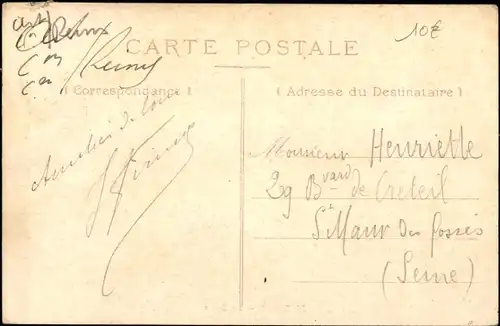 10€
CARTE POSTALE
( Correspondance )
( Adresse du Destinataire )
Amitiés de tous
Monsieur Henriette
29 Bvard de Creteil
St Maur des fossés
(Seine)